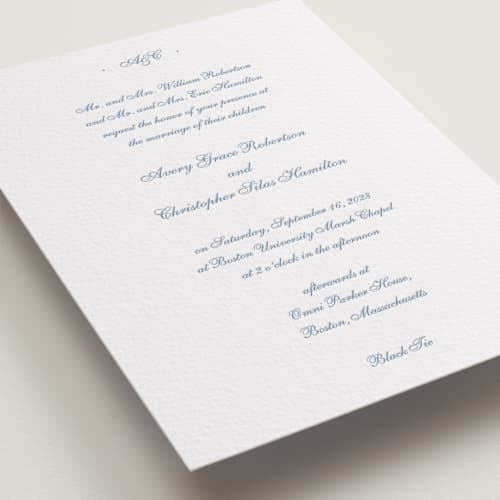 A&C
Mr. and Mrs. William Robertson
and Mr. and Mrs. Eric Hamilton
request the honor of your presence at
the marriage of their children
Avery Grace Robertson
and
Christopher Silas Hamilton
on Saturday, September 16, 2028
at Boston University Marsh Chapel
at 2 o'clock in the afternoon
afterwards at
Omni Parker House,
Boston, Massachusetts
Black Tie